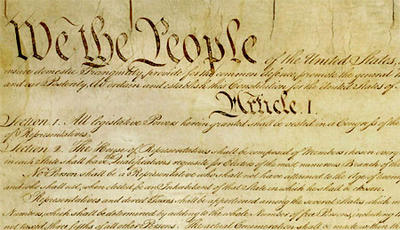 We the People of the United States,
insure domestic Tranquility, provide for the common defence, promote the general
and our Posterity, do ordain and establish this Constitution for the United States of
Article. I.
Section. 1. All legislative Powers herein granted shall be vested in a Congress of the
of Representatives.
Section. 2. The House of Representatives shall be composed of Members chosen every
in each State shall have the Qualifications requisite for Electors of the most numerous Branch of the
No Person shall be a Representative who shall not have attained to the Age of twenty
and who shall not, when elected, be an Inhabitant of that State in which he shall be chosen.
Representatives and direct Taxes shall be apportioned among the several States which
Numbers, which shall be determined by adding to the whole Number of free Persons, including
not taxed, three fifths of all other Persons. The actual Enumeration shall be made